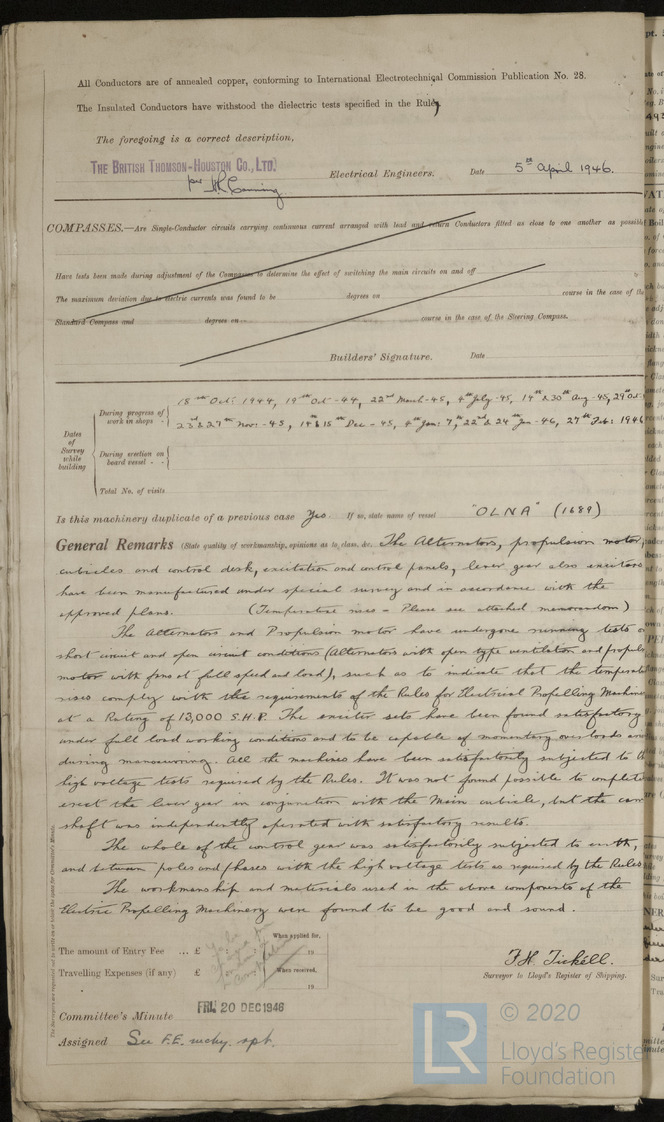 All Conductors are of annealed copper, conforming to International Electrotechnical Commission Publication No. 28.
The Insulated Conductors have withstood the dielectric tests specified in the Rules,
The foregoing is a correct description,
THE BRITISH THOMSON-HOUSTON CO., LTD.
per
Electrical Engineers.
Date 5th April 1946.
COMPASSES.—Are Single-Conductor circuits carrying continuous current arranged with lead and return Conductors fitted as close to one another as possible
Have tests been made during adjustment of the Compasses to determine the effect of switching the main circuits on and off
The maximum deviation due to electric currents was found to be degrees on course in the case of the
Standard Compass and degrees on course in the case of the Steering Compass.
Builders' Signature. Date
Dates of Survey while building
During progress of work in shops - -
18th Oct: 1944, 19th Oct -44, 22nd March -45, 4th July -45, 14th & 30th Aug -45, 29th Oct
23rd & 27th Nov: -45, 14 & 15th Dec -45, 4th Jan: 7, 22nd & 24th Jan -46, 27th Feb: 1946
During erection on board vessel - -
Total No. of visits
Is this machinery duplicate of a previous case Yes. If so, state name of vessel "OLNA" (1689)
General Remarks (State quality of workmanship, opinions as to class, &c. The Alternators, propulsion motor,
cubicles and control desk, excitation and control panels, lever gear also exciters
have been manufactured under special survey and in accordance with the
approved plans. (Temperature rises - Please see attached memorandum)
The Alternators and Propulsion motor have undergone running tests on
short circuit and open circuit conditions (Alternators with open type ventilation and propuls
motor with fans at full speed and load), such as to indicate that the temperat
rises comply with the requirements of the Rules for Electrical Propelling Machine
at a Rating of 13,000 S.H.P. The exciter sets have been found satisfactory
under full load working conditions and to be capable of momentary overloads
during manoeuvring. All the machines have been satisfactorily subjected to th
high voltage tests required by the Rules. It was not found possible to complete
erect the lever gear in conjunction with the Main cubicle, but the cam
shaft was independently operated with satisfactory results.
The whole of the control gear was satisfactorily subjected to earth,
and between poles and phases with the high voltage tests as required by the Rules
The workmanship and materials used in the above components of the
Electric Propelling Machinery were found to be good and sound.
The amount of Entry Fee ... £
When applied for,
19
Travelling Expenses (if any) £
When received,
19
F.H. Tickell.
Surveyor to Lloyd's Register of Shipping.
Committee's Minute FRI. 20 DEC 1946
Assigned See F.E. mchy. rpt.
LR
© 2020
Lloyd's Registe
Foundation